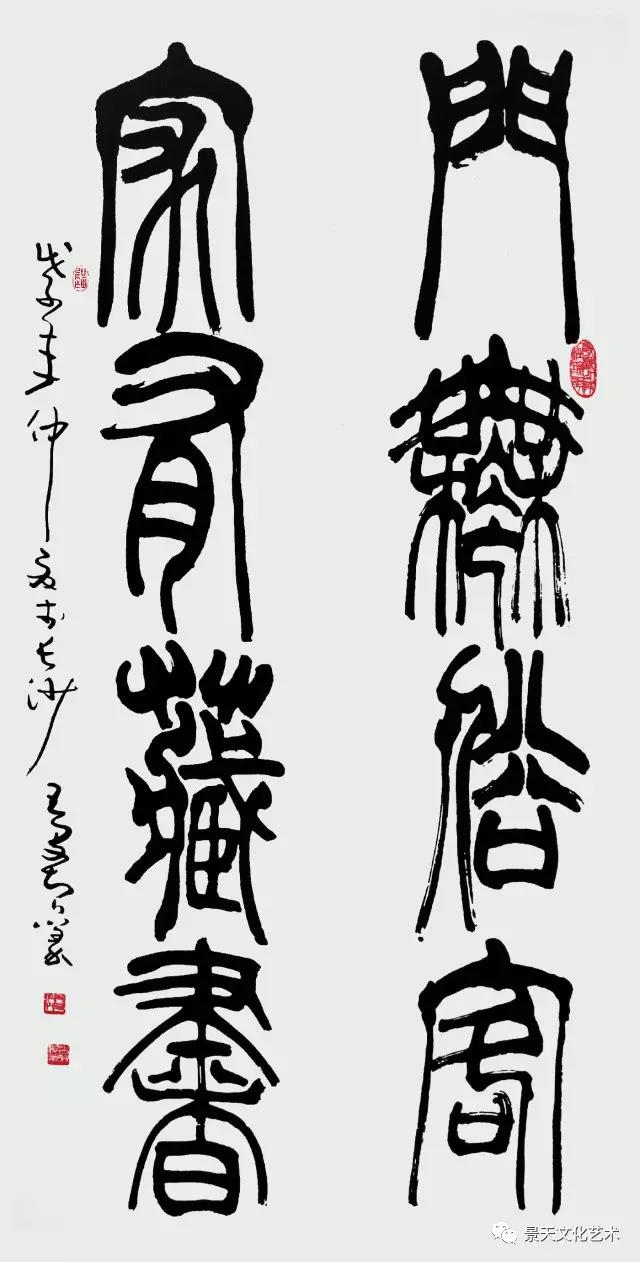 門無俗客
家有藏書
戊子年仲夏於長沙
景天文化艺术